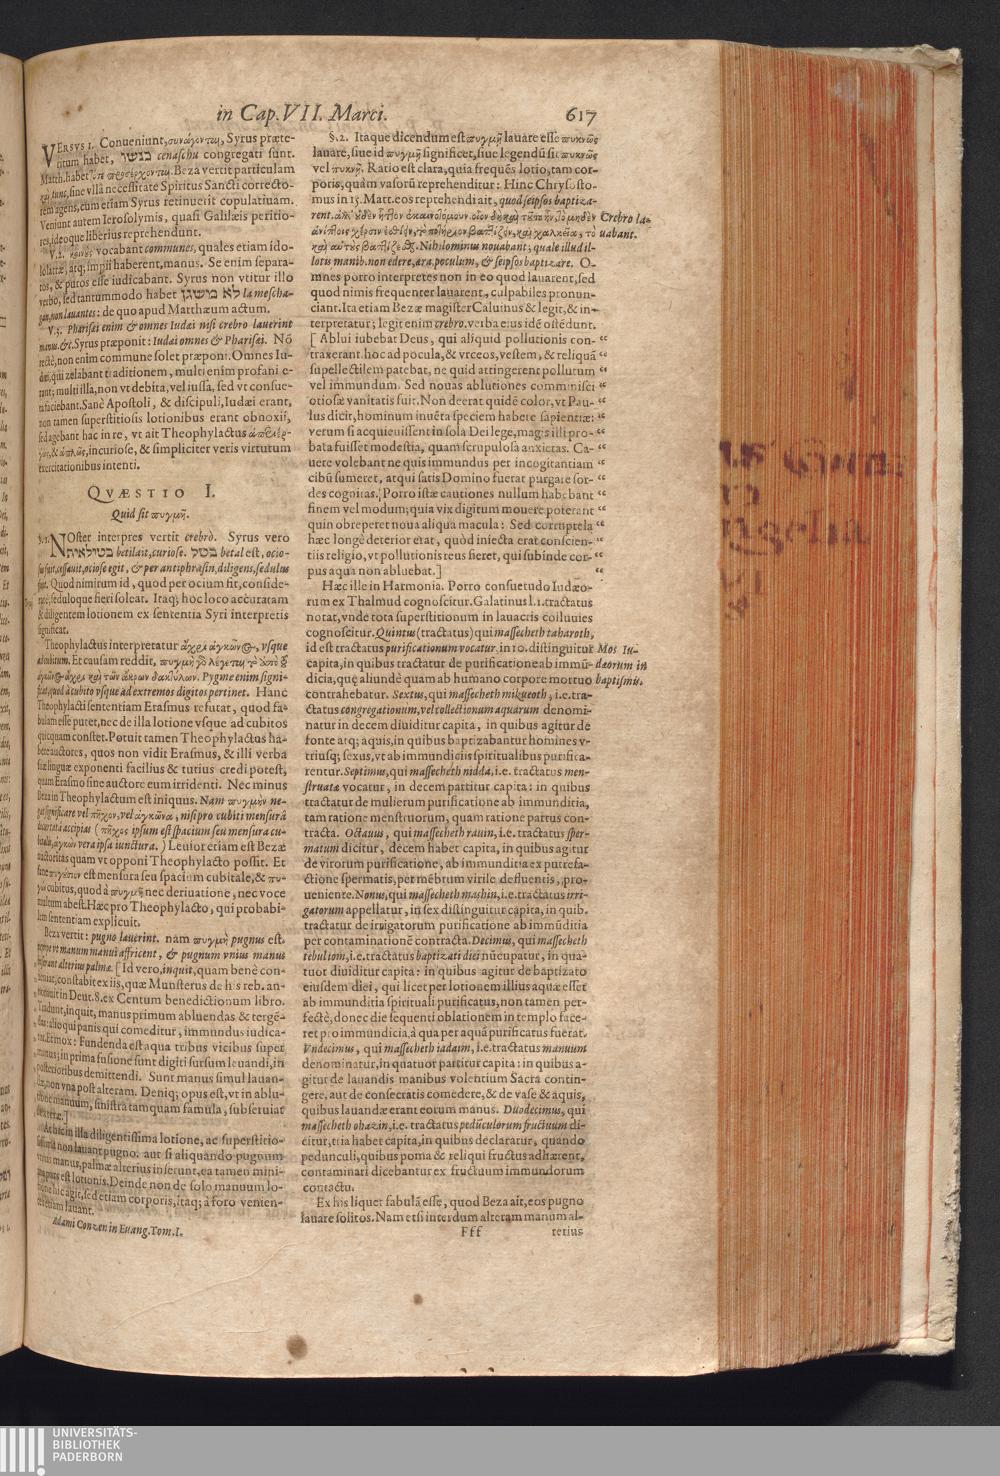 in Cap. VII. Marci. 617
VERSVS 1. Conueniunt, συνάγονται, Syrus præte-
ritum habet, כנשו cenaschu congregati sunt.
Matth. habet τότε προσέρχονται. Beza vertit particulam
καὶ tunc, sine vllâ necessitate Spiritus Sancti correcto-
rem agens, cum etiam Syrus retinuerit copulatiuam.
Veniunt autem Ierosolymis, quasi Galilæis peritio-
res, ideoque liberius reprehendunt.
V. 2. κοινὰς vocabant communes, quales etiam ido-
lolatræ, atq; impij haberent, manus. Se enim separa-
tos, & puros esse iudicabant. Syrus non vtitur illo
verbo, sed tantummodo habet לא משגן la mescha-
gan, non lauantes: de quo apud Matthæum actum.
V. 3. Pharisæi enim & omnes Iudæi nisi crebro lauerint
manus, &c. Syrus præponit: Iudæi omnes & Pharisæi. Nō
rectè, non enim commune solet præponi. Omnes Iu-
dæi, qui zelabant traditionem, multi enim profani e-
rant; multi illa, non vt debita, vel iussa, sed vt consue-
ta faciebant. Sanè Apostoli, & discipuli, Iudæi erant,
non tamen superstitiosis lotionibus erant obnoxij,
sed agebant hac in re, vt ait Theophylactus
& ἁπλῶς, incuriose, & simpliciter veris virtutum
exercitationibus intenti.
QVÆSTIO I.
Quid sit πυγμῇ.
§. 1. NOster interpres vertit crebrò. Syrus vero
בטילאית betilait, curiose. בטל betal est, ocio-
sus fuit, cessauit, ociose egit, & per antiphrasin, diligens, sedulus
fuit. Quod nimirum id, quod per ocium fit, conside-
ratè, seduloque fieri soleat. Itaq; hoc loco accuratam
& diligentem lotionem ex sententia Syri interpretis
significat.
Theophylactus interpretatur ἄχρι ἀγκῶνος, vsque
ad cubitum. Et causam reddit, πυγμὴ γὸ λέγεται τὸ ἀπὸ
ἀγκῶνος ἄχρι καὶ τῶν ἄκρων δακτύλων. Pygme enim signi-
ficat, quod à cubito vsque ad extremos digitos pertinet. Hanc
Theophylacti sententiam Erasmus refutat, quod fa-
bulam esse putet, nec de illa lotione vsque ad cubitos
quicquam constet. Potuit tamen Theophylactus ha-
bere auctores, quos non vidit Erasmus, & illi verba
suæ linguæ exponenti facilius & tutius credi potest,
quam Erasmo sine auctore eum irridenti. Nec minus
Beza in Theophylactum est iniquus. Nam πυγμὴν ne-
gat significare vel πῆχον, vel ἀγκῶνα, nisi pro cubiti mensurâ
decurtatâ accipias (πῆχος ipsum est spacium seu mensura cu-
bitalis, ἀγκὼν vera ipsa iunctura.) Leuior etiam est Bezæ
auctoritas quam vt opponi Theophylacto possit. Et
sane πυγώνον est mensura seu spacium cubitale, & πυ-
γὼν cubitus, quod à πυγμῆ nec deriuatione, nec voce
multum abest. Hæc pro Theophylacto, qui probabi-
lem sententiam explicuit.
Beza vertit: pugno lauerint. nam πυγμὴ pugnus est,
nempe vt manum manui affricent, & pugnum vnius manus
inserant alterius palmæ. [Id vero, inquit, quam benè con-
ueniat, constabit ex iis, quæ Munsterus de his reb. an-
notauit in Deut. 8. ex Centum benedictionum libro.
Tradunt, inquit, manus primum abluendas & tergē-
das: alioqui panis qui comeditur, immundus iudica-
tur. Et mox: Fundenda est aqua tribus vicibus super
manus; in prima fusione sunt digiti sursum leuandi, in
posterioribus demittendi. Sunt manus simul lauan-
dæ, non vna post alteram. Deniq; opus est, vt in ablu-
tione manuum, sinistra tamquam famula, subseruiat
dexteræ.]
At hic in illa diligentissima lotione, ac superstitio-
sissima non lauant pugno: aut si aliquando pugnum
vnius manus, palmæ alterius inserunt, ea tamen mini-
ma pars est lotionis. Deinde non de solo manuum lo-
tione hic agit, sed etiam corporis, itaq; à foro venien-
tes etiam lauant.
Adami Conzen in Euang. Tom. I.
§. 2. Itaque dicendum est πυγμῇ lauare esse πυκνῶς
lauare, siue id πυγμῇ significet, siue legendū sit πυκνῶς
vel πυκνῇ. Ratio est clara, quia frequēs lotio, tam cor-
poris, quàm vasorū reprehenditur: Hinc Chrysosto-
mus in 15. Matt. eos reprehendi ait, quod seipsos baptiza-
rent. ἀλλ' οὐδὲν ἧττον ἐκαινοτόμουν. οἷον δὴ καὶ τοῦτο ἦν, τὸ μηδὲν
ἀνίπτοις χέρσιν ἐσθίειν, τὸ ποτήριον βαπτίζειν, καὶ χαλκεῖα, τὸ
καὶ αὐτοὺς βαπτίζεσθαι. Nihilominus nouabant; quale illud il-
lotis manib. non edere, æra, poculum, & seipsos baptizare. O-
mnes porro interpretes non in eo quod lauarent, sed
quod nimis frequenter lauarent, culpabiles pronun-
ciant. Ita etiam Bezæ magister Caluinus & legit, & in-
terpretatur; legit enim crebro. verba eius idē ostēdunt.
[Ablui iubebat Deus, qui aliquid pollutionis con-
traxerant. hoc ad pocula, & vrceos, vestem, & reliquā
supellectilem patebat, ne quid attingerent pollutum
vel immundum. Sed nouas ablutiones comminisci
otiosæ vanitatis fuit. Non deerat quidē color, vt Pau-
lus dicit, hominum inuēta speciem habere sapientiæ:
verum si acquieuissent in sola Dei lege, magis illi pro-
bata fuisset modestia, quam scrupulosa anxietas. Ca-
uere volebant ne quis immundus per incogitantiam
cibū sumeret, atqui satis Domino fuerat purgare sor-
des cognitas. Porro istæ cautiones nullum habebant
finem vel modum; quia vix digitum mouere poterant
quin obreperet noua aliqua macula: Sed corruptela
hæc longè deterior erat, quòd iniecta erat conscien-
tiis religio, vt pollutionis reus fieret, qui subinde cor-
pus aqua non abluebat.]
Hæc ille in Harmonia. Porro consuetudo Iudæo-
rum ex Thalmud cognoscitur. Galatinus l. 1. tractatus
notat, vnde tota superstitionum in lauacris colluuies
cognoscitur. Quintus (tractatus) qui massecheth taharoth,
id est tractatus purificationum vocatur. in 10. distinguitur
capita, in quibus tractatur de purificatione ab immū-
dicia, quę aliundè quam ab humano corpore mortuo
contrahebatur. Sextus, qui massecheth mikueoth, i. e. tra-
ctatus congregationum, vel collectionum aquarum denomi-
natur in decem diuiditur capita, in quibus agitur de
fonte atq; aquis, in quibus baptizabantur homines v-
triusq; sexus, vt ab immundiciis spiritualibus purifica-
rentur. Septimus, qui massecheth nidda, i. e. tractatus men-
struatæ vocatur, in decem partitur capita: in quibus
tractatur de mulierum purificatione ab immunditia,
tam ratione menstruorum, quam ratione partus con-
tracta. Octauus, qui massecheth rauin, i. e. tractatus sper-
matum dicitur, decem habet capita, in quibus agitur
de virorum purificatione, ab immunditia ex putrefa-
ctione spermatis, per mēbrum virile defluentis, pro-
ueniente. Nonus, qui massecheth mashin, i. e. tractatus irri-
gatorum appellatur, in sex distinguitur capita, in quib.
tractatur de irrigatorum purificatione ab immūditia
per contaminationē contracta. Decimus, qui massecheth
tebuliom, i. e. tractatus baptizati diei nūcupatur, in qua-
tuor diuiditur capita: in quibus agitur de baptizato
eiusdem diei, qui licet per lotionem illius aquæ esset
ab immunditia spirituali purificatus, non tamen per-
fectè, donec die sequenti oblationem in templo face-
ret pro immundicia, à qua per aquā purificatus fuerat.
Vndecimus, qui massecheth iadaim, i. e. tractatus manuum
denominatur, in quatuor partitur capita: in quibus a-
gitur de lauandis manibus volentium Sacra contin-
gere, aut de consecratis comedere, & de vase & aquis,
quibus lauandæ erant eorum manus. Duodecimus, qui
massecheth ohazin, i. e. tractatus pedūculorum fructuum di-
citur, tria habet capita, in quibus declaratur, quando
pedunculi, quibus poma & reliqui fructus adhærent,
contaminari dicebantur ex fructuum immundorum
contactu.
Ex his liquet fabulā esse, quod Beza ait, eos pugno
lauare solitos. Nam etsi interdum alteram manum al-
Fff terius
Crebro la-
uabant.
Mos Iu-
dæorum in
baptismis.
UNIVERSITÄTS-
BIBLIOTHEK
PADERBORN